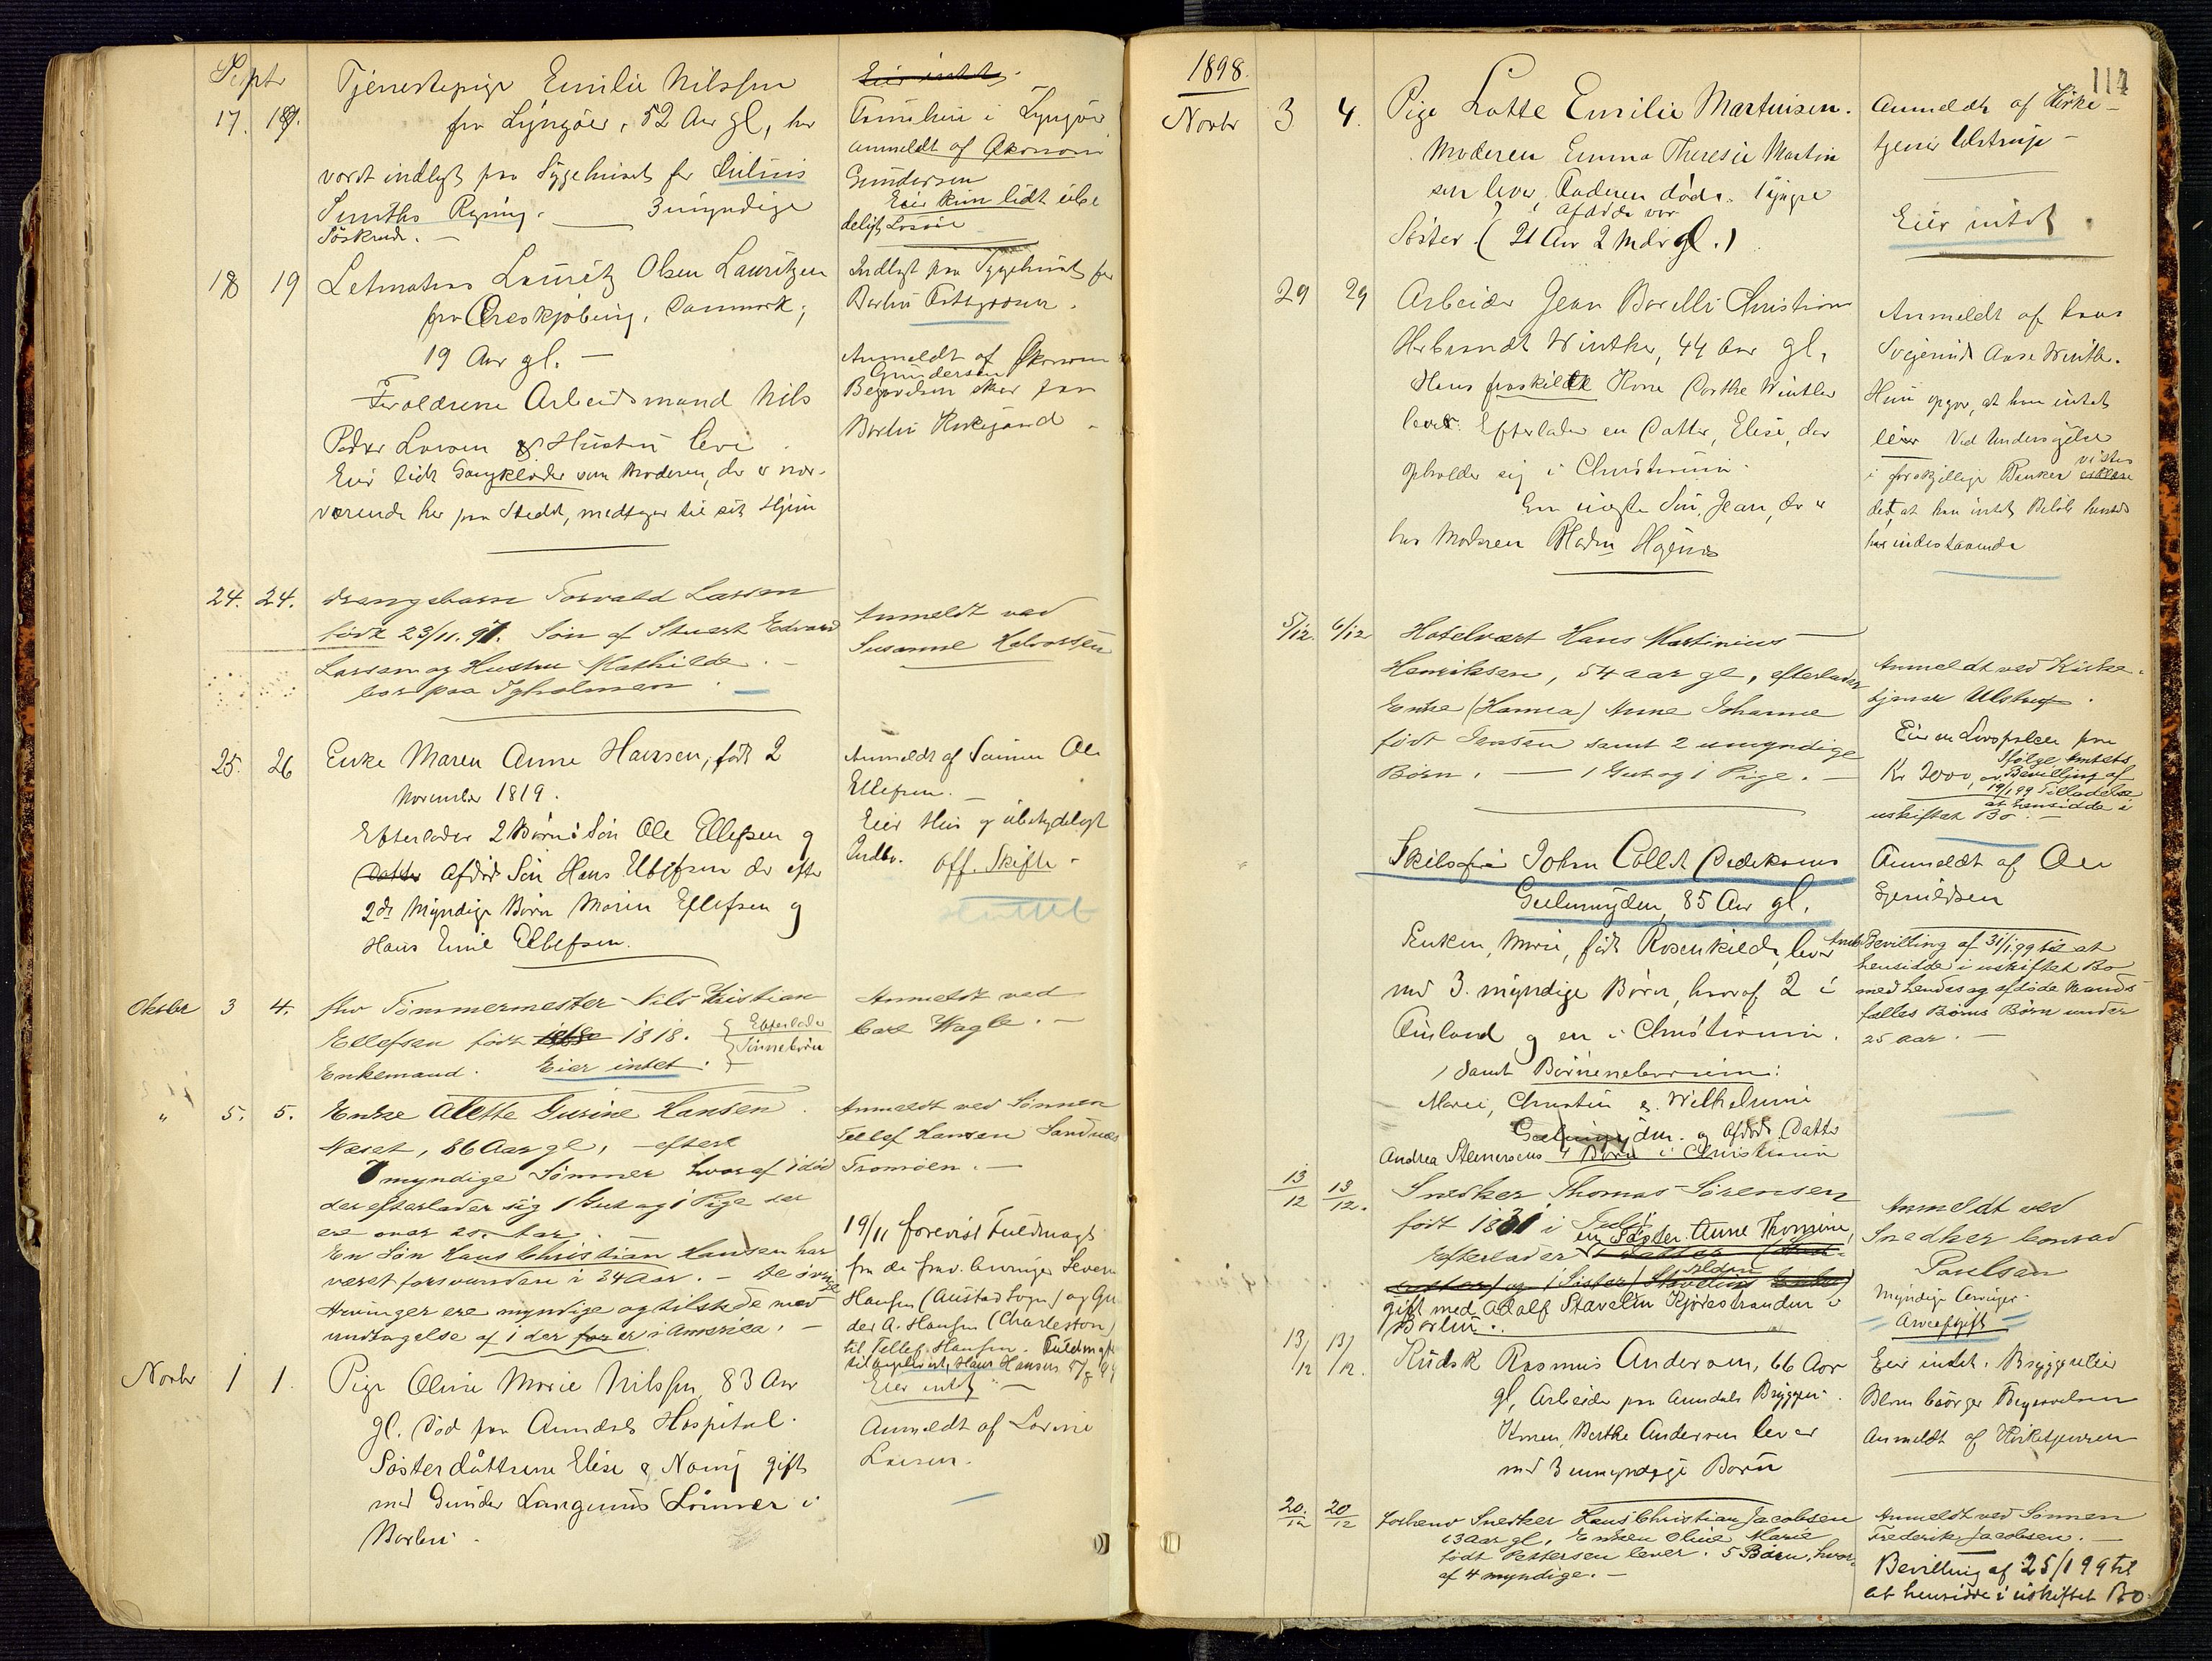 Septr
17. 19. Tjenestepige Emilie Nilssen
fra Lyngöer, 52 Aar gl, har
vært indlagt paa Sygehuset for Julius
Smiths Regning. — 3 myndige
Söskende. —
Eier intet.
Familien i Lyngör
anmeldt af Økonom
Gundersen
Eier kun lidt ube
deligt Lösöre
18 19 Letmatros Lauritz Olsen Lauritzen
fra Æreskjöbing, Danmark,
19 Aar gl. —
Forældrene Arbeidsmand Nils
Peder Larsen & Hustru leve
Eier lidt Gangklæder som Moderen, der er nær-
værende her paa Stedet, medtager til sit Hjem
Indlagt paa Sygehuset for
Barbu
Anmeldt af Økonom
Gundersen
Begravelsen sker paa
Barbu Kirkegaard
24. 24. Drengebarn Torvald Larsen
født 23/11.97. Søn af Stuert Edvard
Larsen og Hustru Mathilde. —
bor paa
Anmeldt ved
Susanne Halvorsen
25. 26 Enke Maren Anne Hansen, födt 2
November 1819.
Efterlader 2 Börn: Sön Ole Ellefsen og
Datter Afdöd Sön Hans Ellefsen der efter
2de Myndige Börn Maren Ellefsen og
Hans Emil Ellefsen.
Anmeldt af Sönnen Ole
Ellefsen. —
Eier Hus og ubetydeligt
Indbo. off. Skifte
sluttet
Oktober 3 4. fhv Tømmermester Nils Kristian
Ellefsen født 1818.
Enkemand. Eier intet.
Efterlader
Sönnebörn
Anmeldt ved
Carl Wagle. —
" 5. 5. Enke Alette Gurine Hansen
Næset, 86 Aar gl, — efterl
7 myndige Sønner hvoraf 1 død
der efterlader sig 1 Gut og 1 Pige der
ere over 20. Aar.
En Søn Hans Christian Hansen har
været forsvunden i 34 Aar. — De øvrige
Arvinger ere myndige og tilstede med
undtagelse af 1 der er i America. —
Anmeldt ved Sønnen
Tellef Hansen Sandnæs
Tromøen. —
19/11 forevist Fuldmagt
fra de frav. Arvinger Severin
Hansen (Austad Sogn) og Gun
der A. Hansen (Charleston)
til Tellef Hansen. Fuldmagt
Novbr 1 1. Pige Oline Marie Nilssen, 83 Aar
gl. Död paa Arendals Hospital.
Søsterdöttrene Elise & Nanny gift
med Gunder Langmyrs Sönner i
Barbu.
Eier intet —
Anmeldt af Lovise
Larsen.
1898.
114
Novbr 3 4. Pige Lotte Emilie Martinsen.
Moderen Emma Theresie Martin
sen lever, Faderen död. 1 yngre
Söster (afdöde var 21 Aar 2 Mdr gl.)
Anmeldt af Kirke-
tjener Ulstrup —
Eier intet
29 29 Arbeider Jean Borelli Christian
Herbrandt Winther, 44 Aar gl,
Hans fraskildte Kone Dorthe Winther
lever. Efterlader en Datter, Elise, der
opholder sig i Christiania.
En uægte Sön, Jean, der er
hos Moderen
Anmeldt af hans
Svigerinde Aase Winther.
Hun opgav, at han intet
eier Ved Undersögelse
i forskjellige Banker vistes
det, at han intet Belöb havde
her indestaaende
5/12. 6/12 Hotelvært Hans Martinius
Henriksen, 54 aar gl, efterlader
Enke (Hanna) Anne Johanne
født Jensen samt 2 umyndige
Børn, — 1 Gut og 1 Pige. —
Anmeldt ved Kirke-
tjener Ulstrup.
Eier en Livspolice paa
Kr 2000,
Ifølge Amtets
Bevilling af
19/1 99 Tilladelse
at hensidde i
uskiftet Bo. —
Skibsfører John Collet Dedekam
Geelmuyden, 85 Aar gl.
Enken, Marie, født Rosenkilde, lever
med 3 myndige Børn, hvoraf 2 i
Udland og en i Christiania.
samt Börnenebörn:
Marie, Christine & Wilhelmine
Geelmuyden. og Afdöde Datter
Andrea Steinersens 4 Børn i Christiania
Anmeldt af Ole
Bevilling af 31/1.99 til at
hensidde i uskiftet Bo
med hendes og afdøde Mands
fælles Børns Børn under
25 aar. —
13/12 13/12. Snedker Thomas Sørensen
født 1831 i Juli
Efterlader en Søster Anne Thomine,
gift med Adolf Stavelin Kjørestranden i
Barbu.
Anmeldt ved
Snedker Conrad
Paulsen
Myndige Arvinger
Arveafgift
13/12 13/12. Kudsk Rasmus Andersen, 66 Aar
gl, Arbeider paa Arendals Bryggeri.
Konen, Berthe Andersen lever
med 3 umyndige Börn
Eier intet. Bryggerieier
Blom besörger Begravelsen
Anmeldt af Kirketjeneren
20./12 20/12 forhenv Snedker Hans Christian Jacobsen
Aar gl, Enken Oline Marie
født Pettersen lever. 5 Børn, hvor-
af 4 myndige. —
Anmeldt ved Sønnen
Frederik Jacobsen. —
Bevilling af 25/1 99 til
at hensidde i uskiftet Bo.